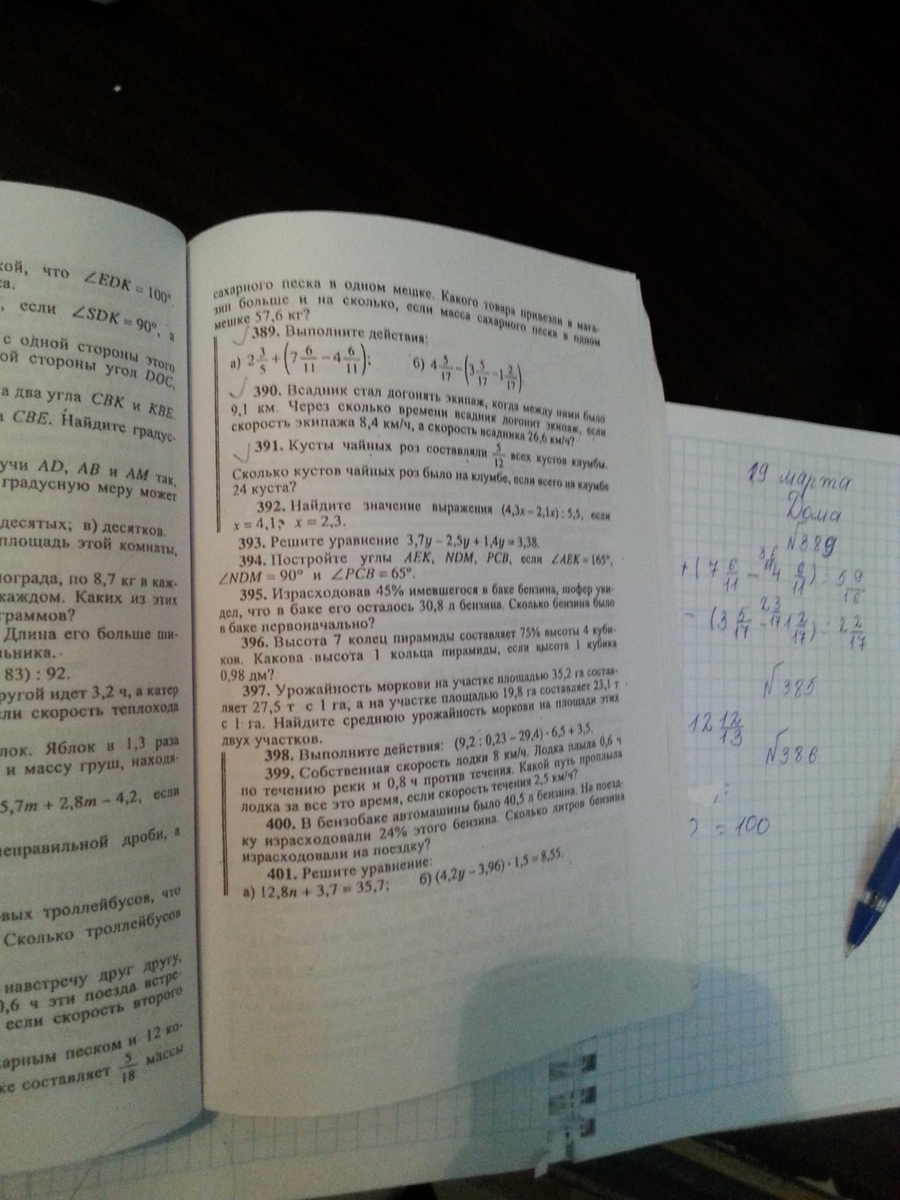 кой, что ∠EDK = 100°
если ∠SDK = 90°, а
с одной стороны этого
ой стороны угол DOC,
а два угла CBK и KBE.
CBE. Найдите градус-
учи AD, AB и AM так,
градусную меру может
десятых; в) десятков.
площадь этой комнаты,
нограда, по 8,7 кг в каж-
каждом. Каких из этих
граммов?
Длина его больше ши-
льника.
83) : 92.
ругой идет 3,2 ч, а катер
сли скорость теплохода
лок. Яблок в 1,3 раза
и массу груш, находя-
5,7m + 2,8m − 4,2, если
неправильной дроби, а
вых троллейбусов, что
Сколько троллейбусов
навстречу друг другу,
0,6 ч эти поезда встре-
если скорость второго
арным песком и 12 ко-
ке составляет 5/18 массы
сахарного песка в одном мешке. Какого товара привезли в мага-
зин больше и на сколько, если масса сахарного песка в одном
мешке 57,6 кг?
389. Выполните действия:
а) 2 3/5 + (7 6/11 − 4 6/11); б) 4 5/17 − (3 5/17 − 1 2/17)
390. Всадник стал догонять экипаж, когда между ними было
9,1 км. Через сколько времени всадник догонит экипаж, если
скорость экипажа 8,4 км/ч, а скорость всадника 26,6 км/ч?
391. Кусты чайных роз составляли 5/12 всех кустов клумбы.
Сколько кустов чайных роз было на клумбе, если всего на клумбе
24 куста?
392. Найдите значение выражения (4,3x − 2,1x) : 5,5, если
x = 4,1; x = 2,3.
393. Решите уравнение 3,7y − 2,5y + 1,4y = 3,38.
394. Постройте углы AEK, NDM, PCB, если ∠AEK = 165°,
∠NDM = 90° и ∠PCB = 65°.
395. Израсходовав 45% имевшегося в баке бензина, шофер уви-
дел, что в баке его осталось 30,8 л бензина. Сколько бензина было
в баке первоначально?
396. Высота 7 колец пирамиды составляет 75% высоты 4 куби-
ков. Какова высота 1 кольца пирамиды, если высота 1 кубика
0,98 дм?
397. Урожайность моркови на участке площадью 35,2 га состав-
ляет 27,5 т с 1 га, а на участке площадью 19,8 га составляет 23,1 т
с 1 га. Найдите среднюю урожайность моркови на площади этих
двух участков.
398. Выполните действия: (9,2 : 0,23 − 29,4) · 6,5 + 3,5.
399. Собственная скорость лодки 8 км/ч. Лодка плыла 0,6 ч
по течению реки и 0,8 ч против течения. Какой путь проплыла
лодка за все это время, если скорость течения 2,5 км/ч?
400. В бензобаке автомашины было 40,5 л бензина. На поезд-
ку израсходовали 24% этого бензина. Сколько литров бензина
израсходовали на поездку?
401. Решите уравнение:
а) 12,8n + 3,7 = 35,7; б) (4,2y − 3,96) · 1,5 = 8,55.
19 марта
Дома
№389
№385
12 12/13
№386
= 100